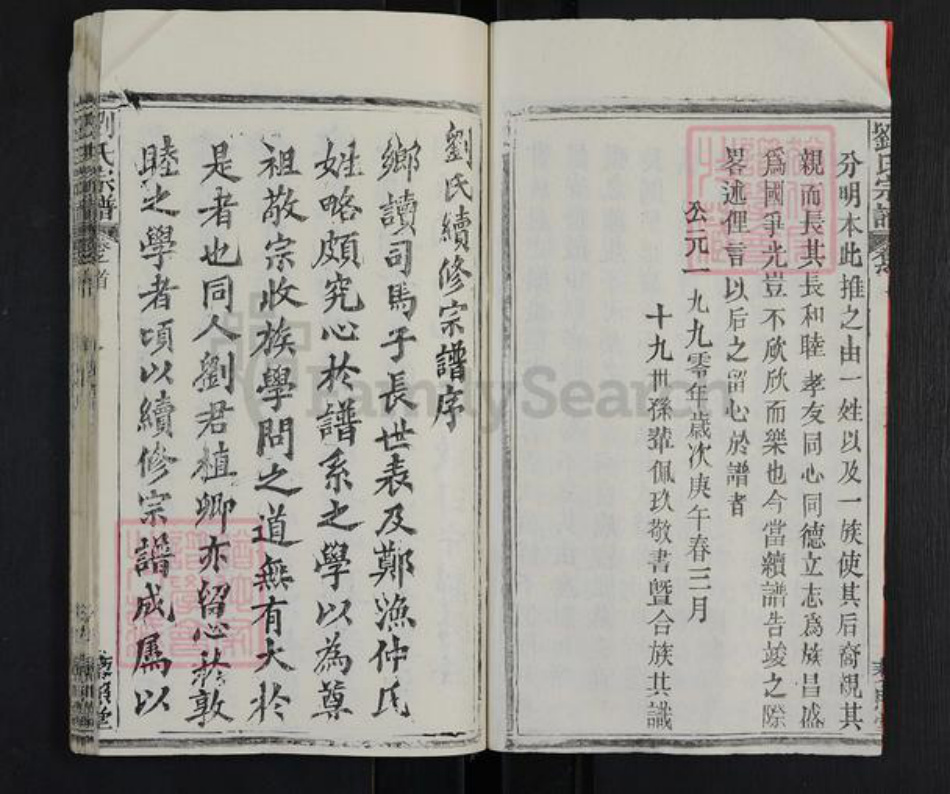 劉氏宗譜
分明本此推之由一姓以及一族使其后裔親其
親而長其長和睦孝友同心同德立志為族昌盛
爲國爭光豈不欣欣而樂也今當續譜告竣之際
畧述俚言以后之留心於譜者
公元一九九零年歲次庚午春三月
十九世孫輩佩玖敬書暨合族共識
劉氏續修宗譜序
鄉讀司馬子長世表及鄭漁仲氏
姓略頗究心於譜系之學以為尊
祖敬宗收族學問之道無有大於
是者也同人劉君植卿亦留心於敦
睦之學者頃以續修宗譜成属以
劉氏宗譜
卷之首
FamilySearch